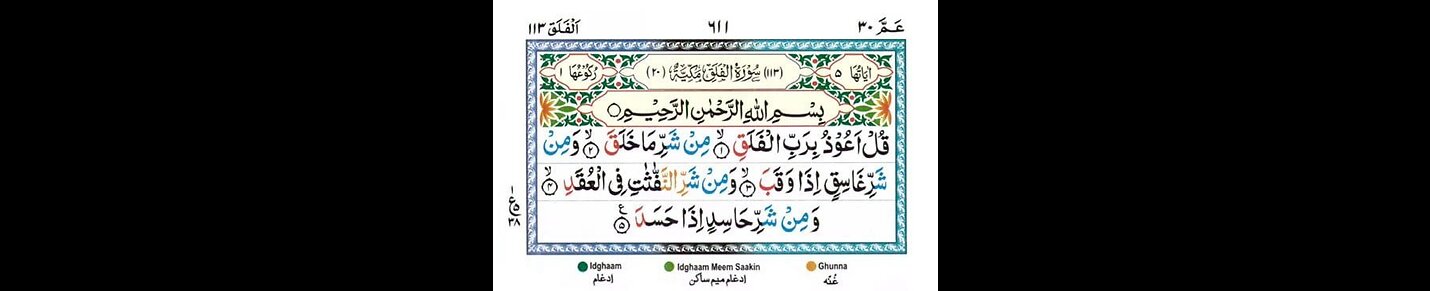 عَـمَّ ٣٠
٦١١
اَلْفَلَق ١١٣
اٰيَاتُهَا ٥
(١١٣) سُوْرَةُ الْفَلَقِ مَكِّيَّةٌ (٢٠)
رُكُوْعُهَا ١
بِسْمِ اللّٰهِ الرَّحْمٰنِ الرَّحِيْمِ ○
قُلْ اَعُوْذُ بِرَبِّ الْفَلَقِ ۙ١ مِنْ شَرِّ مَا خَلَقَ ۙ٢ وَمِنْ
شَرِّ غَاسِقٍ اِذَا وَقَبَ ۙ٣ وَمِنْ شَرِّ النَّفّٰثٰتِ فِى الْعُقَدِ ۙ٤
وَمِنْ شَرِّ حَاسِدٍ اِذَا حَسَدَ ٥ ع
١
ع ٥
٣٨
Idghaam
ادغام
Idghaam Meem Saakin
ادغام میم ساکن
Ghunna
غُنّه